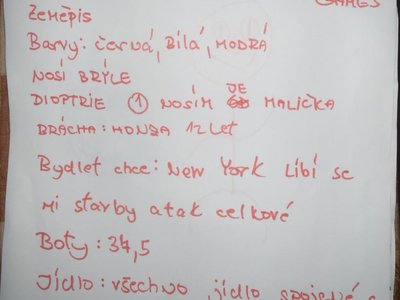 GAMES
Zeměpis
Barvy: černá, Bílá, MODRÁ
NOSÍ BRÝLE
DIOPTRIE 1 NOSÍM JE MALIČKA
BRÁCHA: HONZA 12 let
Bydlet chce: New York líbí se
mi stavby a tak celkové
Boty: 34,5
Jídlo: všechno jídlo spojené s